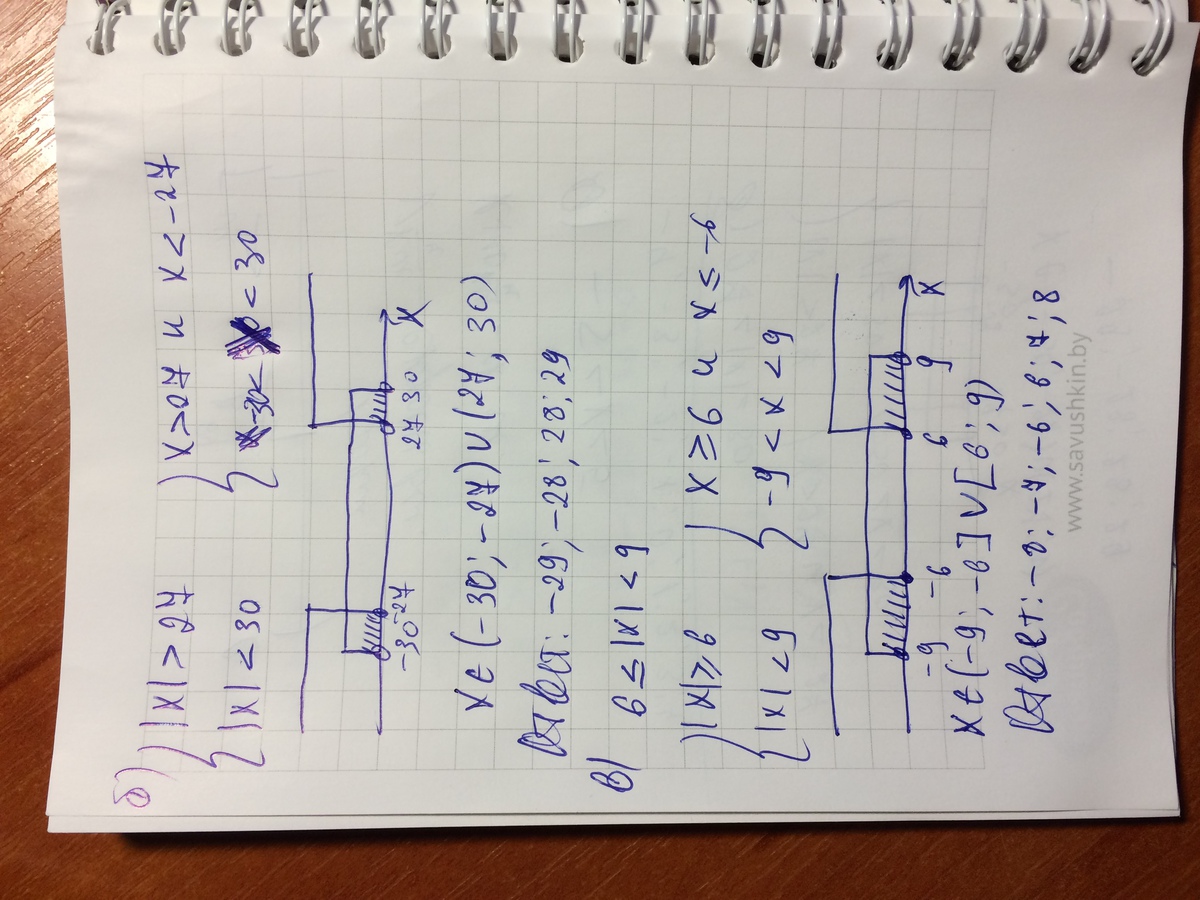 б) { |x| > 27 { x > 27 и x < -27
|x| < 30 -30 < x < 30
-30 -27 27 30 x
x ∈ (-30; -27) ∪ (27; 30)
Ответ: -29; -28; 28; 29
в) 6 ≤ |x| < 9
{ |x| ≥ 6 { x ≥ 6 и x ≤ -6
|x| < 9 -9 < x < 9
-9 -6 6 9 x
x ∈ (-9; -6] ∪ [6; 9)
Ответ: -8; -7; -6; 6; 7; 8
www.savushkin.by